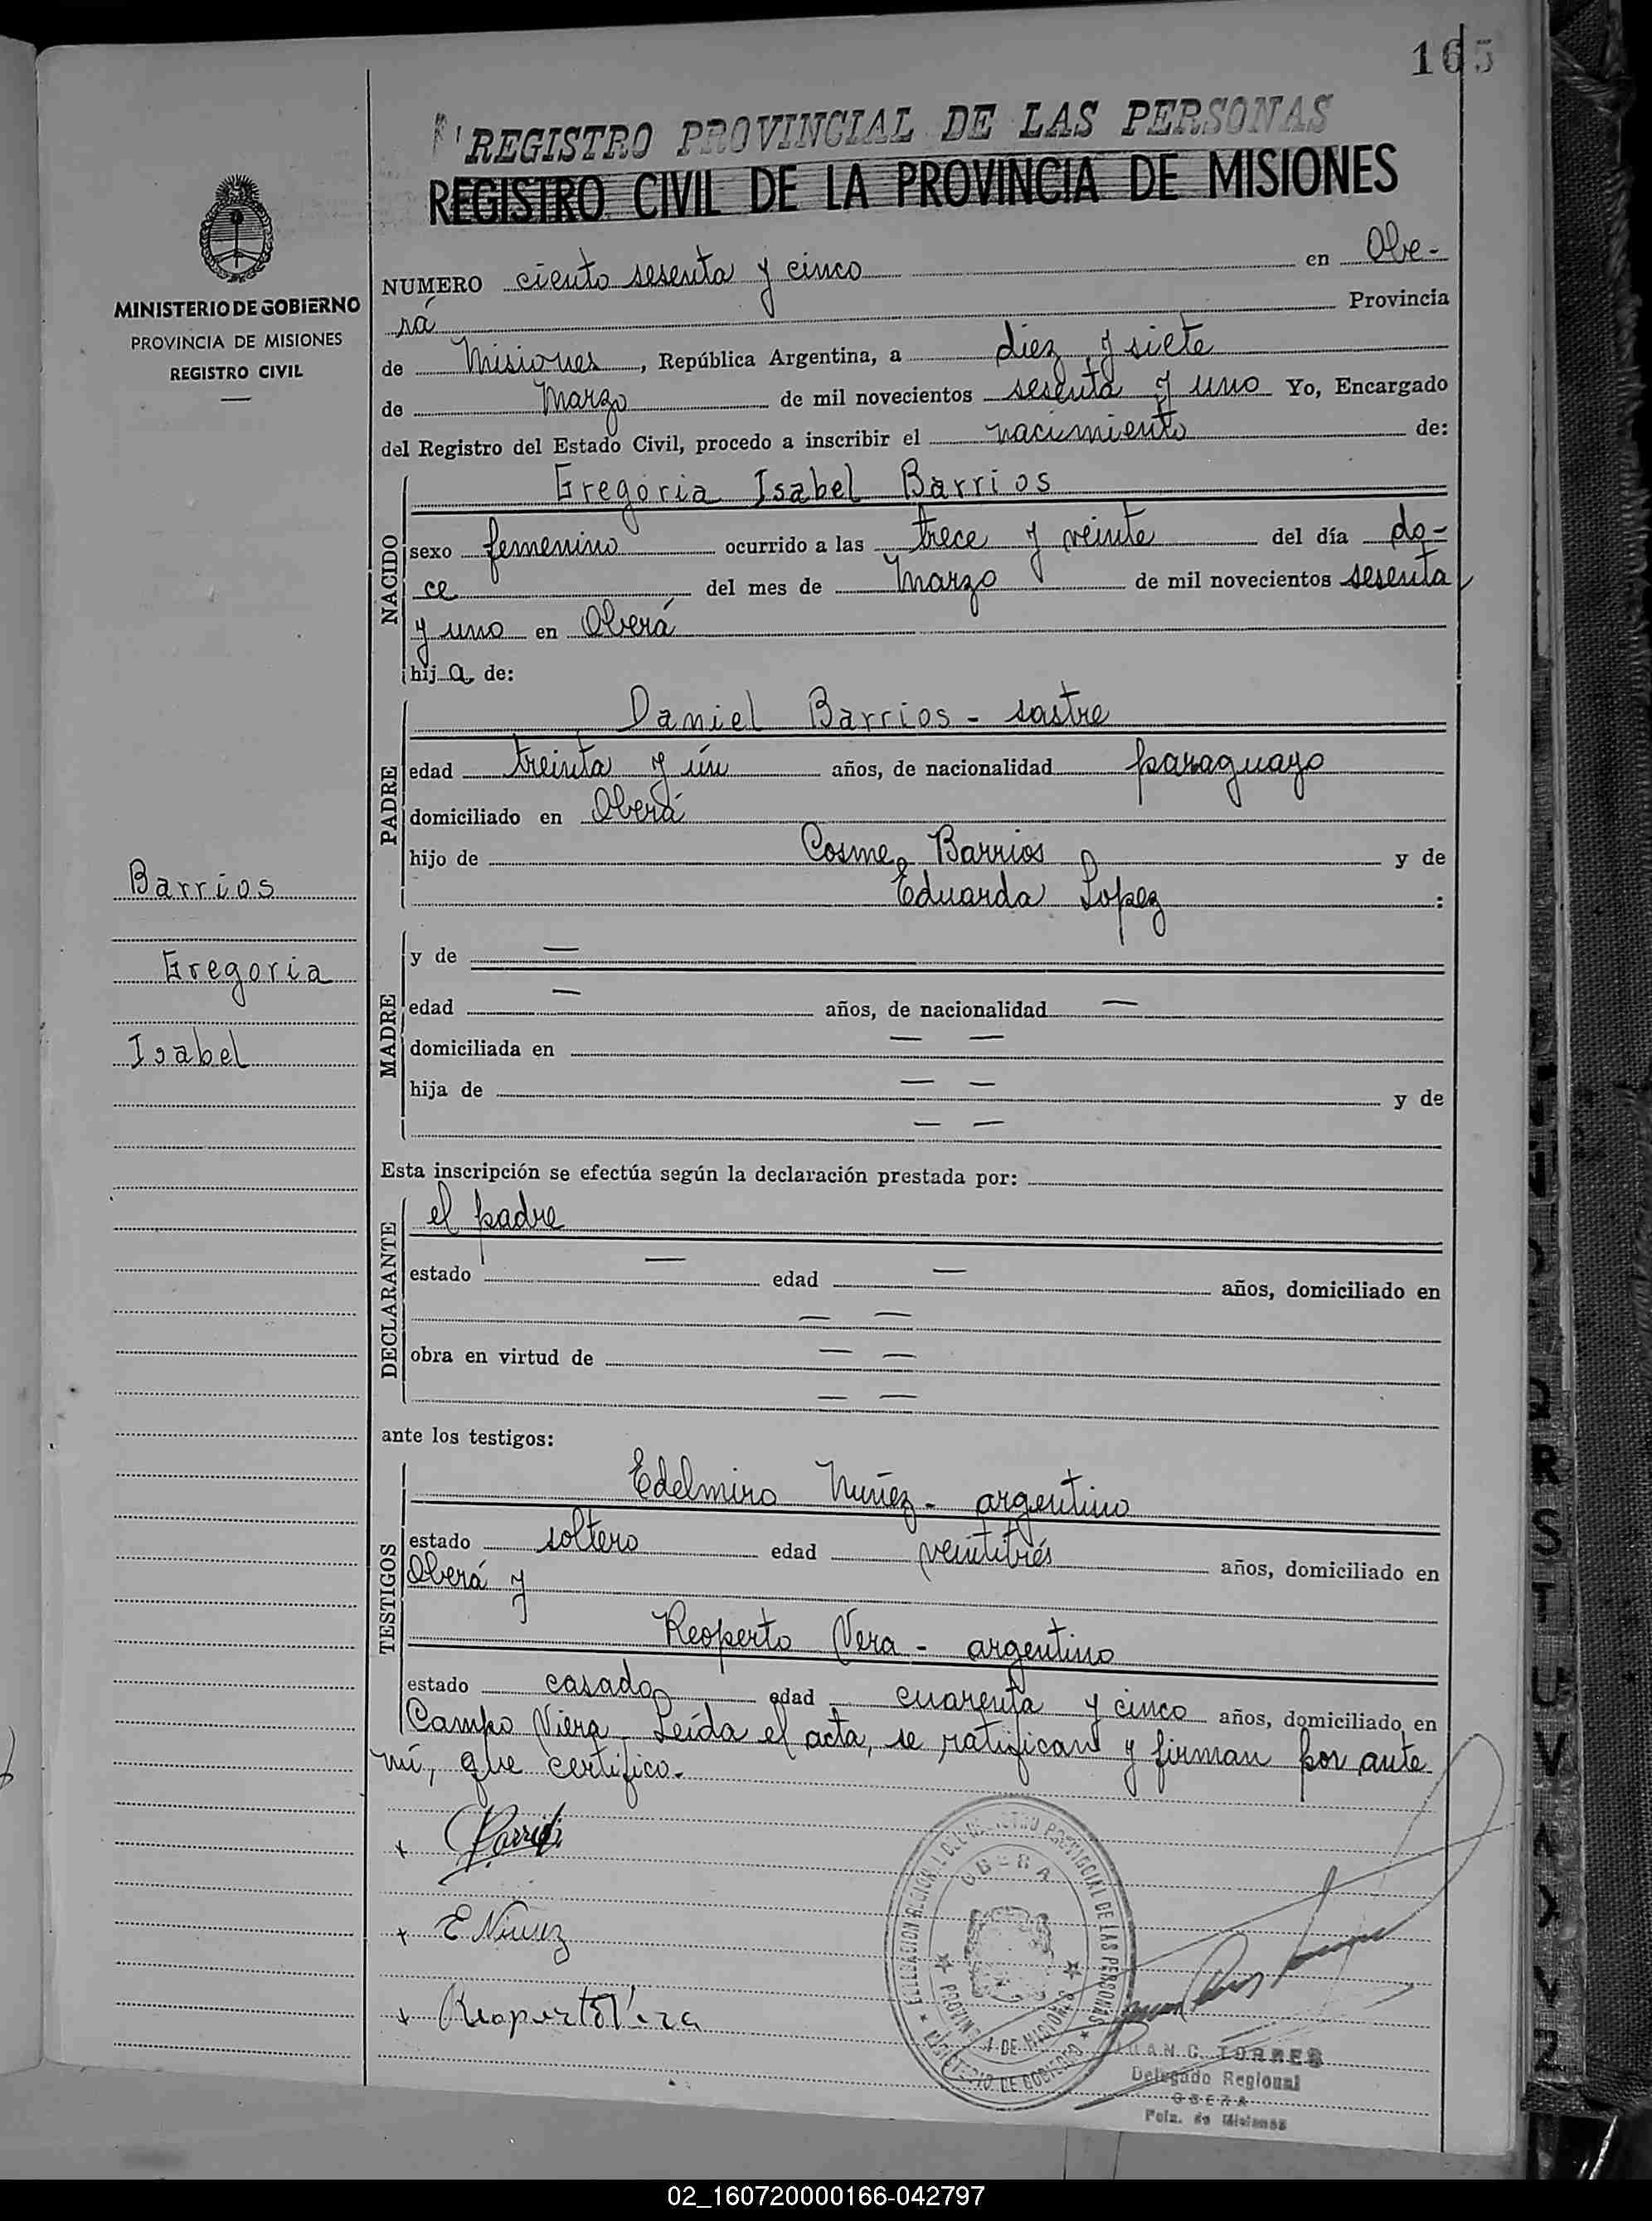 165
REGISTRO PROVINCIAL DE LAS PERSONAS
REGISTRO CIVIL DE LA PROVINCIA DE MISIONES
MINISTERIO DE GOBIERNO
PROVINCIA DE MISIONES
REGISTRO CIVIL
NUMERO ciento sesenta y cinco en Obe-
rá Provincia
de Misiones, República Argentina, a diez y siete
de Marzo de mil novecientos sesenta y uno Yo, Encargado
del Registro del Estado Civil, procedo a inscribir el nacimiento de:
NACIDO
Gregoria Isabel Barrios
sexo femenino ocurrido a las trece y veinte del día do-
ce del mes de Marzo de mil novecientos sesenta
y uno en Oberá
hija de:
PADRE
Daniel Barrios - sastre
edad treinta y ún años, de nacionalidad paraguayo
domiciliado en Oberá
hijo de Cosme Barrios y de
Eduarda Lopez :
Barrios
Gregoria
Isabel
MADRE
y de —
edad — años, de nacionalidad —
domiciliada en — —
hija de — — y de
— —
Esta inscripción se efectúa según la declaración prestada por:
DECLARANTE
el padre
estado — edad — años, domiciliado en
— —
obra en virtud de — —
— —
ante los testigos:
TESTIGOS
Edelmiro Nuñez - argentino
estado soltero edad veintitrés años, domiciliado en
Oberá y
Reoperto Vera - argentino
estado casado edad cuarenta y cinco años, domiciliado en
Campo Viera. Leída el acta, se ratifican y firman por ante
mí, que certifico.-
E Nuñez
Reoperto Vera
REGISTRO PROVINCIAL DE LAS PERSONAS
OBERA
PROVINCIA DE MISIONES
MINISTERIO DE GOBIERNO
JUAN C. TORRES
Delegado Regional
OBERA
Pcia. de Misiones
02_160720000166-042797